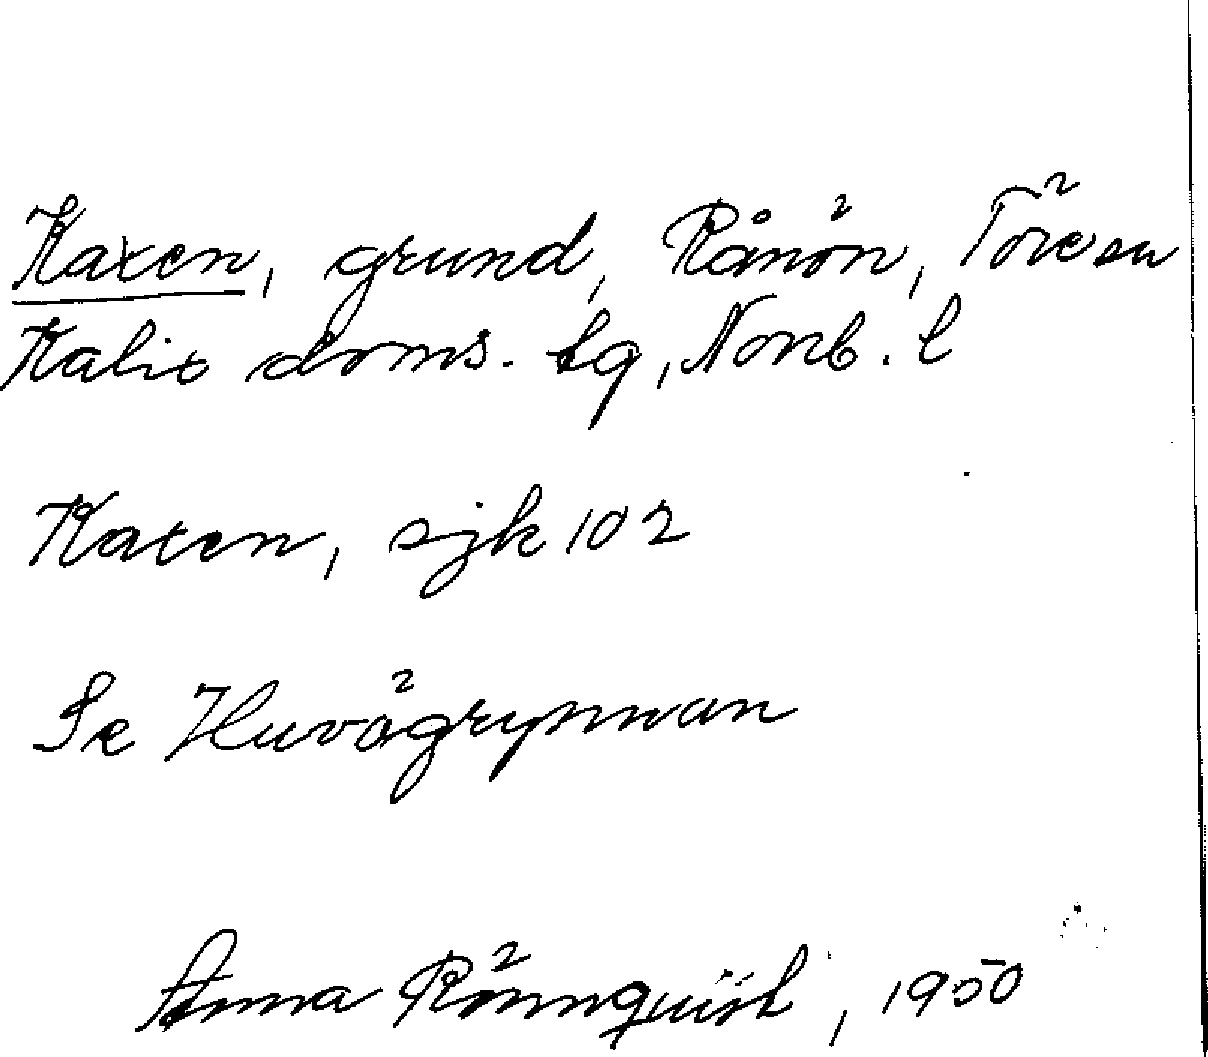 Kaxen, grund, Rånön, Töre sn
Kalix doms. tg, Norrb. l
Kaxen, sjk 102
Se Huvögrynnan
Anna Rönnquist, 1950